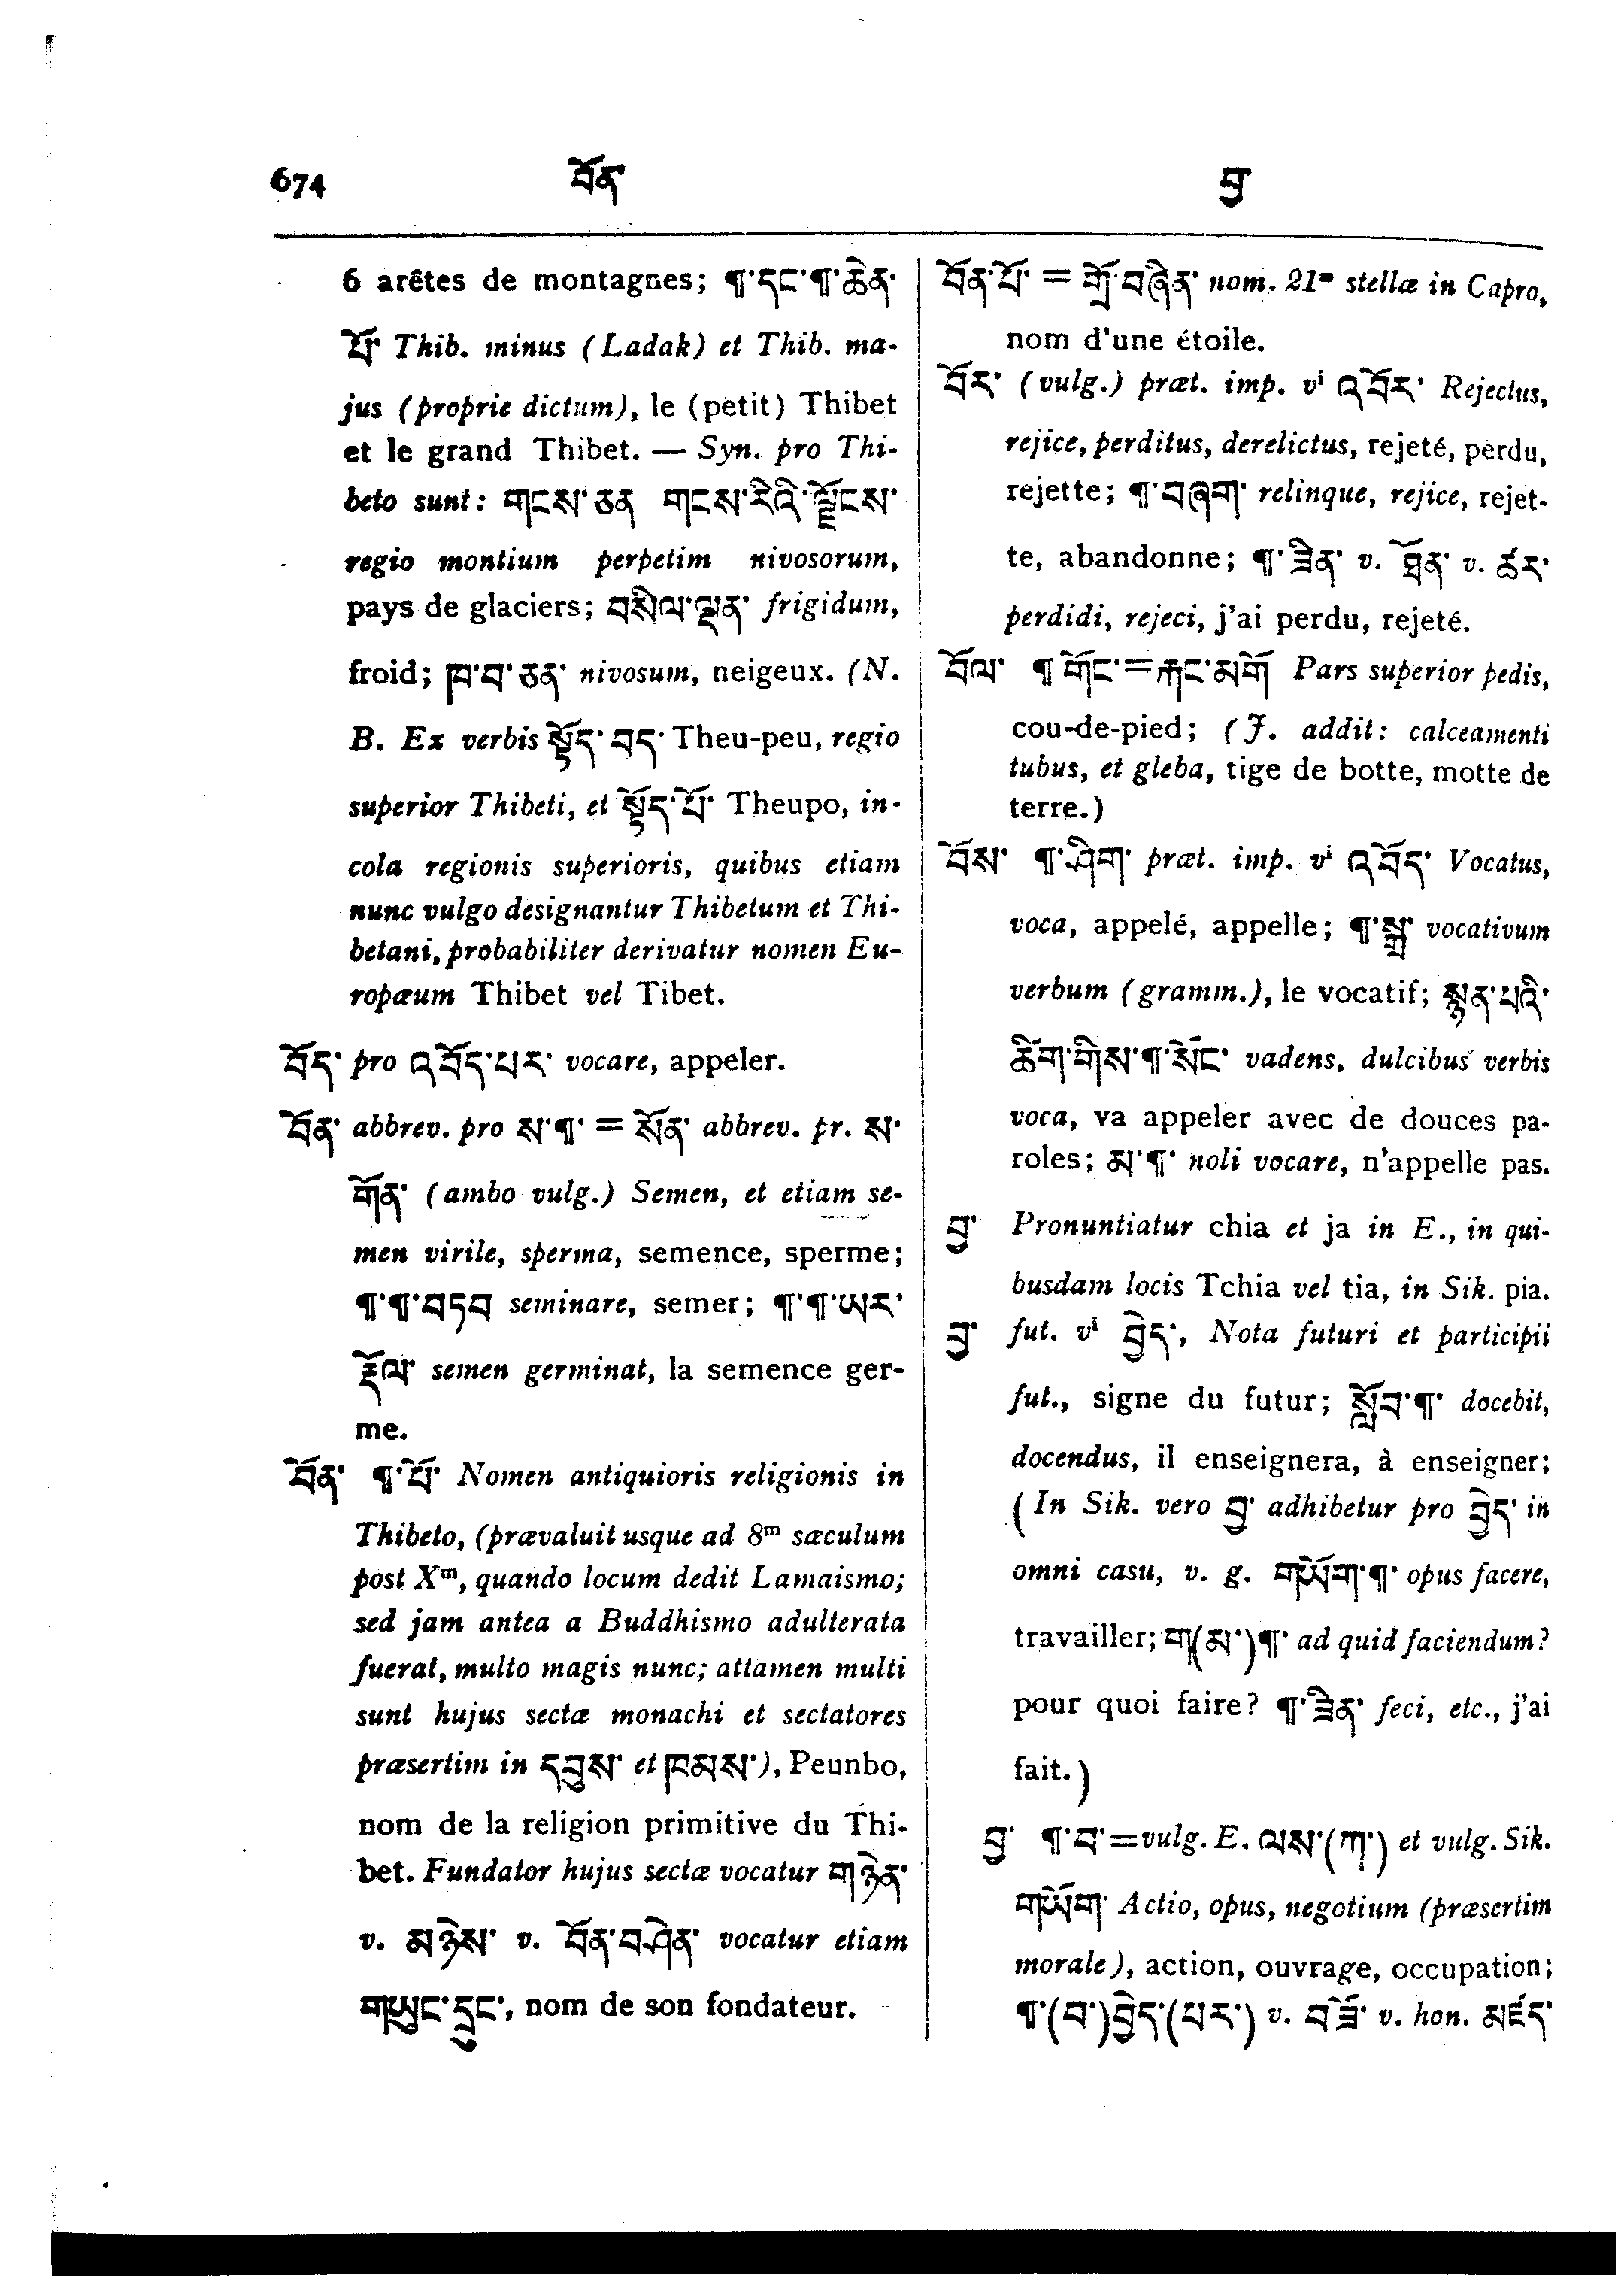 674 བོན་ བྱ་
6 arêtes de montagnes; ¶་དང་¶་ཆེན་
པོ་ Thib. minus (Ladak) et Thib. ma-
jus (proprie dictum), le (petit) Thibet
et le grand Thibet. — Syn. pro Thi-
beto sunt: གངས་ཅན གངས་རིའི་ལྗོངས་
regio montium perpetim nivosorum,
pays de glaciers; བསིལ་ལྡན་ frigidum,
froid; ཁ་བ་ཅན་ nivosum, neigeux. (N.
B. Ex verbis སྟོད་བད་ Theu-peu, regio
superior Thibeti, et སྟོད་པོ་ Theupo, in-
cola regionis superioris, quibus etiam
nunc vulgo designantur Thibetum et Thi-
betani, probabiliter derivatur nomen Eu-
ropæum Thibet vel Tibet.
བོད་ pro འབོད་པར་ vocare, appeler.
བོན་ abbrev. pro ས་¶་ = སོན་ abbrev. pr. ས་
གོན་ (ambo vulg.) Semen, et etiam se-
men virile, sperma, semence, sperme;
¶་¶་བཏབ seminare, semer; ¶་¶་ཡར་
རྡོལ་ semen germinat, la semence ger-
me.
བོན་ ¶་པོ་ Nomen antiquioris religionis in
Thibeto, (prævaluit usque ad 8ᵐ sæculum
post Xᵐ, quando locum dedit Lamaismo;
sed jam antea a Buddhismo adulterata
fuerat, multo magis nunc; attamen multi
sunt hujus sectæ monachi et sectatores
præsertim in དབུས་ et ཁམས་), Peunbo,
nom de la religion primitive du Thi-
bet. Fundator hujus sectæ vocatur གཉེན་
v. མཉེས་ v. བོན་བཤེན་ vocatur etiam
གཡུང་དྲུང་, nom de son fondateur.
བོན་པོ་ = གྲོ་བཞིན་ nom. 21ᵐ stellæ in Capro,
nom d'une étoile.
བོར་ (vulg.) præt. imp. vⁱ འབོར་ Rejectus,
rejice, perditus, derelictus, rejeté, perdu,
rejette; ¶་བཞག་ relinque, rejice, rejet-
te, abandonne; ¶་ཟིན་ v. ཐོན་ v. ཚར་
perdidi, rejeci, j'ai perdu, rejeté.
བོལ་ ¶ གོང་=རྐང་མགོ Pars superior pedis,
cou-de-pied; (J. addit: calceamenti
tubus, et gleba, tige de botte, motte de
terre.)
བོས་ ¶་ཤིག་ præt. imp. vⁱ འབོད་ Vocatus,
voca, appelé, appelle; ¶་སྒྲ་ vocativum
verbum (gramm.), le vocatif; སྙན་པའི་
ཚིག་གིས་¶་སོང་ vadens, dulcibus verbis
voca, va appeler avec de douces pa-
roles; མ་¶་ noli vocare, n'appelle pas.
བྱ་ Pronuntiatur chia et ja in E., in qui-
busdam locis Tchia vel tia, in Sik. pia.
བྱ་ fut. vⁱ བྱེད་, Nota futuri et participii
fut., signe du futur; སློབ་¶་ docebit,
docendus, il enseignera, à enseigner;
(In Sik. vero བྱ་ adhibetur pro བྱེད་ in
omni casu, v. g. གཡོག་¶་ opus facere,
travailler; ག(མ་)¶་ ad quid faciendum?
pour quoi faire? ¶་ཟིན་ feci, etc., j'ai
fait.)
བྱ་ ¶་བ་=vulg. E. ལས་(ཀ་) et vulg. Sik.
གཡོག་ Actio, opus, negotium (præsertim
morale), action, ouvrage, occupation;
¶་(བ་)བྱེད་(པར་) v. བཟོ་ v. hon. མཛད་